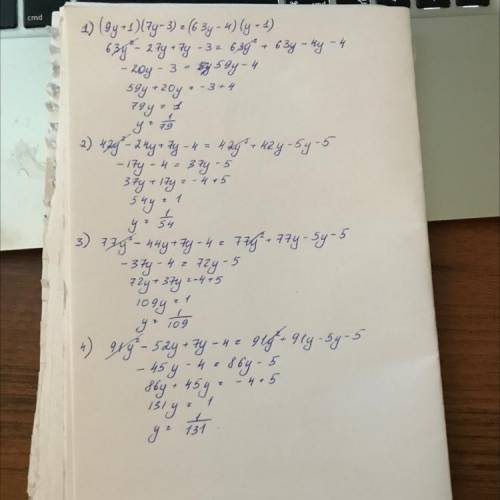 cmd
1) (9y+1)(7y-3)=(63y-4)(y+1)
63y²-27y+7y-3=63y²+63y-4y-4
-20y-3=59y-4
59y+20y=-3+4
79y=1
y=1/79
2) 42y²-24y+7y-4=42y²+42y-5y-5
-17y-4=37y-5
37y+17y=-4+5
54y=1
y=1/54
3) 77y²-44y+7y-4=77y²+77y-5y-5
-37y-4=72y-5
72y+37y=-4+5
109y=1
y=1/109
4) 91y²-52y+7y-4=91y²+91y-5y-5
-45y-4=86y-5
86y+45y=-4+5
131y=1
y=1/131